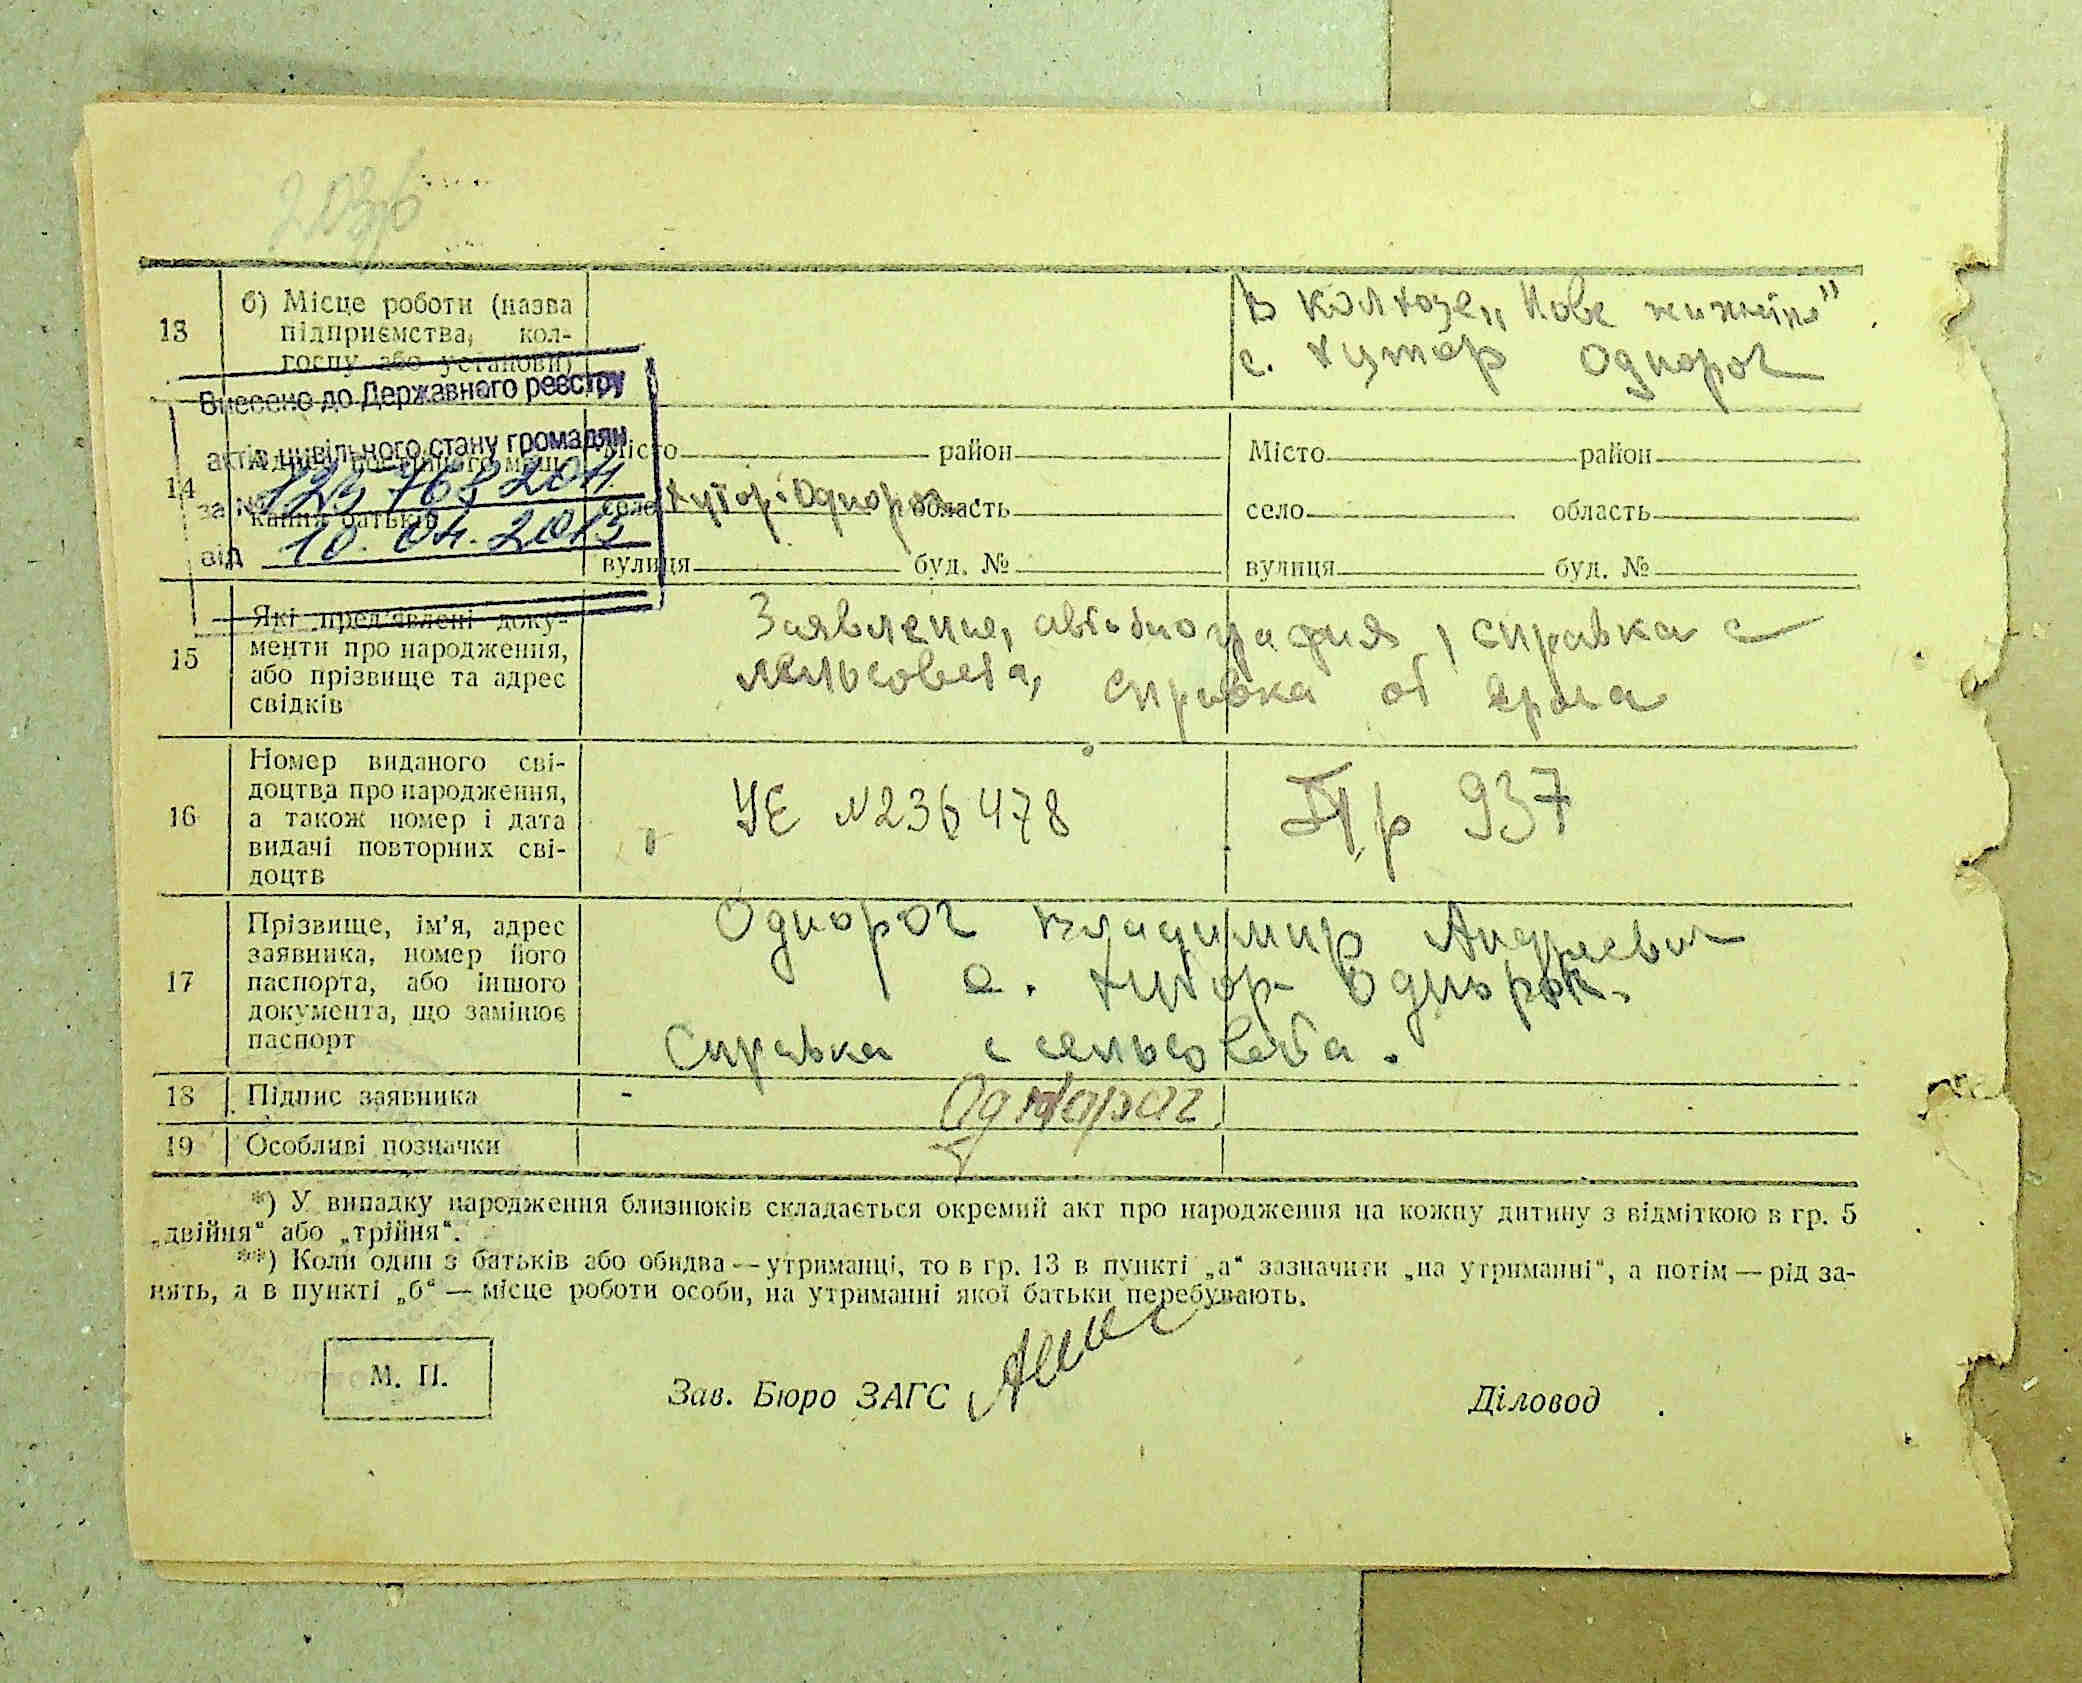 203б
13
б) Місце роботи (назва
підприємства, кол-
госпу або установи)
в колхозе „Нове життя"
с. Хутор Однорог
Внесено до Державного реєстру
актів цивільного стану громадян
за №
від 10. 04. 2013
14
кання батьків
Місто район
село Хутор Однорог область
вулиця буд. №
Місто район
село область
вулиця буд. №
15
Які пред'явлені доку-
менти про народження,
або прізвище та адрес
свідків
Заявление, автобиография, справка с
сельсовета, справка от врача
16
Номер виданого сві-
доцтва про народження,
а також номер і дата
видачі повторних сві-
доцтв
УЄ №236478
Пр 937
17
Прізвище, ім'я, адрес
заявника, номер його
паспорта, або іншого
документа, що замінює
паспорт
Однорог Владимир Андреевич
с. Хутор Однорог.
Справка с сельсовета.
18
Підпис заявника
Однорог
19
Особливі позначки
*) У випадку народження близнюків складається окремий акт про народження на кожну дитину з відміткою в гр. 5
„двійня" або „трійня".
**) Коли один з батьків або обидва — утриманці, то в гр. 13 в пункті „а" зазначити „на утриманні", а потім — рід за-
нять, а в пункті „б" — місце роботи особи, на утриманні якої батьки перебувають.
М. П.
Зав. Бюро ЗАГС
Діловод